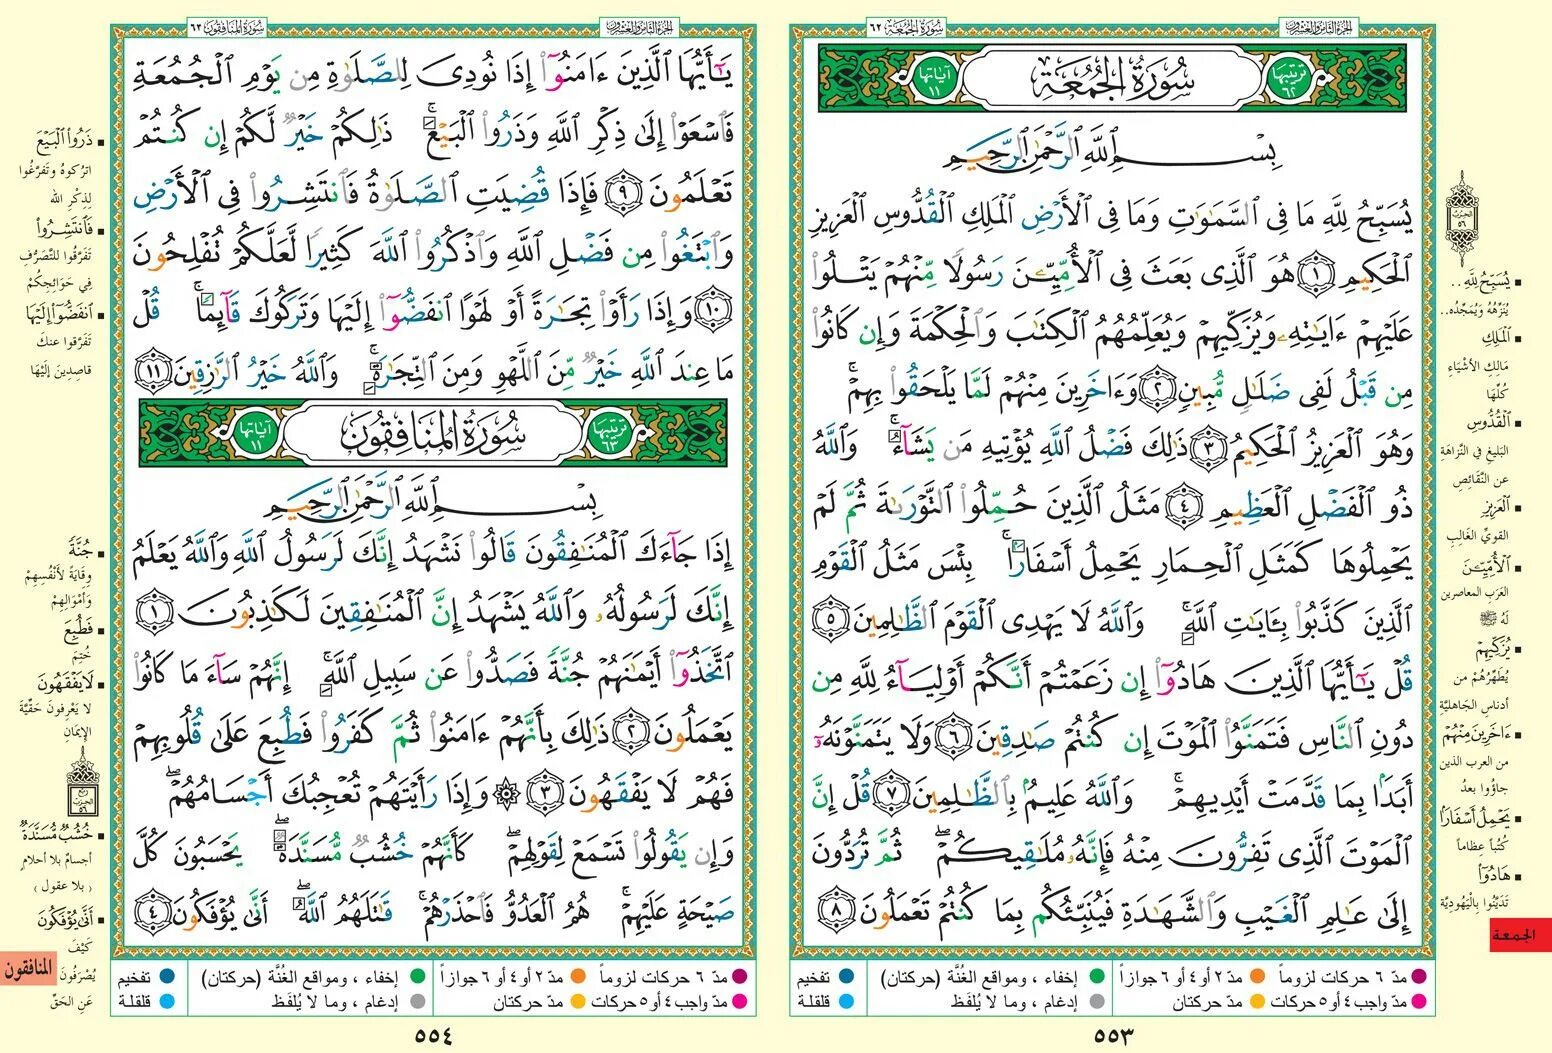 الجزء الثامن والعشرون
سورة الجمعة ٦٢
ترتيبها ٦٢
سُورَةُ الجُمُعَةِ
آياتها ١١
بِسْمِ ٱللَّهِ ٱلرَّحْمَٰنِ ٱلرَّحِيمِ
يُسَبِّحُ لِلَّهِ مَا فِى ٱلسَّمَٰوَٰتِ وَمَا فِى ٱلْأَرْضِ ٱلْمَلِكِ ٱلْقُدُّوسِ ٱلْعَزِيزِ
ٱلْحَكِيمِ ١ هُوَ ٱلَّذِى بَعَثَ فِى ٱلْأُمِّيِّـۧنَ رَسُولًا مِّنْهُمْ يَتْلُوا۟
عَلَيْهِمْ ءَايَٰتِهِۦ وَيُزَكِّيهِمْ وَيُعَلِّمُهُمُ ٱلْكِتَٰبَ وَٱلْحِكْمَةَ وَإِن كَانُوا۟
مِن قَبْلُ لَفِى ضَلَٰلٍ مُّبِينٍ ٢ وَءَاخَرِينَ مِنْهُمْ لَمَّا يَلْحَقُوا۟ بِهِمْ ۚ
وَهُوَ ٱلْعَزِيزُ ٱلْحَكِيمُ ٣ ذَٰلِكَ فَضْلُ ٱللَّهِ يُؤْتِيهِ مَن يَشَآءُ ۚ وَٱللَّهُ
ذُو ٱلْفَضْلِ ٱلْعَظِيمِ ٤ مَثَلُ ٱلَّذِينَ حُمِّلُوا۟ ٱلتَّوْرَىٰةَ ثُمَّ لَمْ
يَحْمِلُوهَا كَمَثَلِ ٱلْحِمَارِ يَحْمِلُ أَسْفَارًۢا ۚ بِئْسَ مَثَلُ ٱلْقَوْمِ
ٱلَّذِينَ كَذَّبُوا۟ بِـَٔايَٰتِ ٱللَّهِ ۚ وَٱللَّهُ لَا يَهْدِى ٱلْقَوْمَ ٱلظَّٰلِمِينَ ٥
قُلْ يَٰٓأَيُّهَا ٱلَّذِينَ هَادُوٓا۟ إِن زَعَمْتُمْ أَنَّكُمْ أَوْلِيَآءُ لِلَّهِ مِن
دُونِ ٱلنَّاسِ فَتَمَنَّوُا۟ ٱلْمَوْتَ إِن كُنتُمْ صَٰدِقِينَ ٦ وَلَا يَتَمَنَّوْنَهُۥٓ
أَبَدًۢا بِمَا قَدَّمَتْ أَيْدِيهِمْ ۚ وَٱللَّهُ عَلِيمٌۢ بِٱلظَّٰلِمِينَ ٧ قُلْ إِنَّ
ٱلْمَوْتَ ٱلَّذِى تَفِرُّونَ مِنْهُ فَإِنَّهُۥ مُلَٰقِيكُمْ ۖ ثُمَّ تُرَدُّونَ
إِلَىٰ عَٰلِمِ ٱلْغَيْبِ وَٱلشَّهَٰدَةِ فَيُنَبِّئُكُم بِمَا كُنتُمْ تَعْمَلُونَ ٨
الحزب ٥٦
يُسَبِّحُ لِلَّهِ ..
يُنَزِّهُهُ وَيُمَجِّدُه..
ٱلْمَلِكِ
مَالِكِ الأَشْيَاءِ
كُلِّهَا
ٱلْقُدُّوسِ
البَلِيغِ فِي النَّزَاهَةِ
عن النَّقَائِصِ
ٱلْعَزِيزِ
القويِّ الغَالِبِ
ٱلْأُمِّيِّـۧنَ
العَرَب المعاصرين
لَهُ ﷺ
يُزَكِّيهِمْ
يُطَهِّرُهُمْ من
أدناسِ الجَاهليَّةِ
ءَاخَرِينَ مِنْهُمْ
من العرب الذين
جاؤُوا بعدُ
يَحْمِلُ أَسْفَارًۢا
كُتُبًا عِظاماً
هَادُوٓا۟
تَدَيَّنُوا بِالْيَهُودِيَّةِ
الجمعة
مدّ ٦ حركات لزوماً
مدّ ٢ أو ٤ أو ٦ جوازاً
إخفاء ، ومواقع الغُنَّة (حركتان)
تفخيم
مدّ واجب ٤ أو ٥ حركات
مدّ حركتان
إدغام ، وما لا يُلفَظ
قلقلة
٥٥٣
الجزء الثامن والعشرون
سورة المنافقون ٦٣
يَٰٓأَيُّهَا ٱلَّذِينَ ءَامَنُوٓا۟ إِذَا نُودِىَ لِلصَّلَوٰةِ مِن يَوْمِ ٱلْجُمُعَةِ
فَٱسْعَوْا۟ إِلَىٰ ذِكْرِ ٱللَّهِ وَذَرُوا۟ ٱلْبَيْعَ ۚ ذَٰلِكُمْ خَيْرٌ لَّكُمْ إِن كُنتُمْ
تَعْلَمُونَ ٩ فَإِذَا قُضِيَتِ ٱلصَّلَوٰةُ فَٱنتَشِرُوا۟ فِى ٱلْأَرْضِ
وَٱبْتَغُوا۟ مِن فَضْلِ ٱللَّهِ وَٱذْكُرُوا۟ ٱللَّهَ كَثِيرًا لَّعَلَّكُمْ تُفْلِحُونَ
١٠ وَإِذَا رَأَوْا۟ تِجَٰرَةً أَوْ لَهْوًا ٱنفَضُّوٓا۟ إِلَيْهَا وَتَرَكُوكَ قَآئِمًا ۚ قُلْ
مَا عِندَ ٱللَّهِ خَيْرٌ مِّنَ ٱللَّهْوِ وَمِنَ ٱلتِّجَٰرَةِ ۚ وَٱللَّهُ خَيْرُ ٱلرَّٰزِقِينَ ١١
ترتيبها ٦٣
سُورَةُ المُنَافِقُونَ
آياتها ١١
بِسْمِ ٱللَّهِ ٱلرَّحْمَٰنِ ٱلرَّحِيمِ
إِذَا جَآءَكَ ٱلْمُنَٰفِقُونَ قَالُوا۟ نَشْهَدُ إِنَّكَ لَرَسُولُ ٱللَّهِ وَٱللَّهُ يَعْلَمُ
إِنَّكَ لَرَسُولُهُۥ وَٱللَّهُ يَشْهَدُ إِنَّ ٱلْمُنَٰفِقِينَ لَكَٰذِبُونَ ١
ٱتَّخَذُوٓا۟ أَيْمَٰنَهُمْ جُنَّةً فَصَدُّوا۟ عَن سَبِيلِ ٱللَّهِ ۚ إِنَّهُمْ سَآءَ مَا كَانُوا۟
يَعْمَلُونَ ٢ ذَٰلِكَ بِأَنَّهُمْ ءَامَنُوا۟ ثُمَّ كَفَرُوا۟ فَطُبِعَ عَلَىٰ قُلُوبِهِمْ
فَهُمْ لَا يَفْقَهُونَ ٣ ۞ وَإِذَا رَأَيْتَهُمْ تُعْجِبُكَ أَجْسَامُهُمْ ۖ
وَإِن يَقُولُوا۟ تَسْمَعْ لِقَوْلِهِمْ ۖ كَأَنَّهُمْ خُشُبٌ مُّسَنَّدَةٌ ۖ يَحْسَبُونَ كُلَّ
صَيْحَةٍ عَلَيْهِمْ ۚ هُمُ ٱلْعَدُوُّ فَٱحْذَرْهُمْ ۚ قَٰتَلَهُمُ ٱللَّهُ ۖ أَنَّىٰ يُؤْفَكُونَ ٤
ذَرُوا۟ ٱلْبَيْعَ
اترُكوهُ وَتَفرَّغُوا
لِذِكْرِ الله
فَٱنتَشِرُوا۟
تَفَرَّقُوا للتَّصَرُّفِ
فِي حَوَائِجِكُمْ
ٱنفَضُّوٓا۟ إِلَيْهَا
تَفَرَّقُوا عنكَ
قاصِدِينَ إلَيْهَا
جُنَّةً
وِقَايَةً لأَنْفُسِهِمْ
وَأَمْوَالِهِمْ
فَطُبِعَ
خُتِمَ
لَا يَفْقَهُونَ
لا يَعْرِفونَ حَقِّيَّةَ
الإِيمَانِ
ربع الحزب ٥٦
خُشُبٌ مُّسَنَّدَةٌ
أجسامٌ بلا أحلامٍ
( بلا عقول )
أَنَّىٰ يُؤْفَكُونَ
كَيْفَ
يُصْرَفُونَ
عَنِ الحَقِّ
المنافقون
مدّ ٦ حركات لزوماً
مدّ ٢ أو ٤ أو ٦ جوازاً
إخفاء ، ومواقع الغُنَّة (حركتان)
تفخيم
مدّ واجب ٤ أو ٥ حركات
مدّ حركتان
إدغام ، وما لا يُلفَظ
قلقلة
٥٥٤